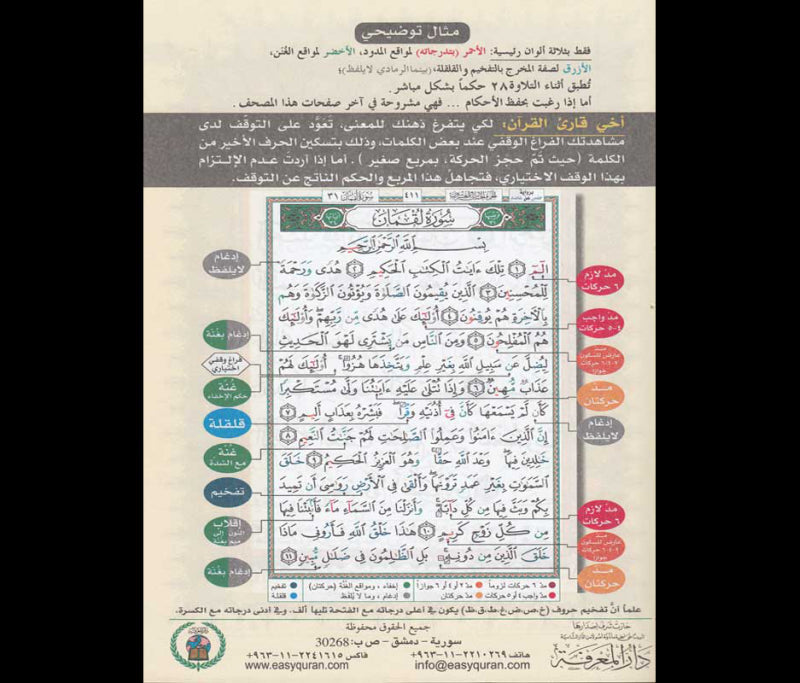 مثال توضيحي
فقط بثلاثة ألوان رئيسية: الأحمر (بتدرجاته) لمواقع المدود، الأخضر لمواقع الغُنَن،
الأزرق لصفة المخرج بالتفخيم والقلقلة، (بينما الرمادي لايلفظ)؛
تُطبق أثناء التلاوة ٢٨ حكماً بشكل مباشر.
أما إذا رغبت بحفظ الأحكام ... فهي مشروحة في آخر صفحات هذا المصحف.
أخي قارئ القرآن: لكي يتفرغ ذهنك للمعنى، تَعَوَّد على التوقف لدى
مشاهدتك الفراغ الوقفي عند بعض الكلمات، وذلك بتسكين الحرف الأخير من
الكلمة (حيث تمَّ حجز الحركة، بمربع صغير). أما إذا أردت عدم الإلتزام
بهذا الوقف الاختياري، فتجاهل هذا المربع والحكم الناتج عن التوقف.
٤١١
سُورَةُ لُقْمَان ٣١
سُورَةُ لُقْمَان
بِسْمِ اللَّهِ الرَّحْمَٰنِ الرَّحِيمِ
الٓمٓ ١ تِلْكَ ءَايَٰتُ ٱلْكِتَٰبِ ٱلْحَكِيمِ ٢ هُدًى وَرَحْمَةً
لِّلْمُحْسِنِينَ ٣ ٱلَّذِينَ يُقِيمُونَ ٱلصَّلَوٰةَ وَيُؤْتُونَ ٱلزَّكَوٰةَ وَهُم
بِٱلْءَاخِرَةِ هُمْ يُوقِنُونَ ٤ أُو۟لَٰٓئِكَ عَلَىٰ هُدًى مِّن رَّبِّهِمْ وَأُو۟لَٰٓئِكَ
هُمُ ٱلْمُفْلِحُونَ ٥ وَمِنَ ٱلنَّاسِ مَن يَشْتَرِى لَهْوَ ٱلْحَدِيثِ
لِيُضِلَّ عَن سَبِيلِ ٱللَّهِ بِغَيْرِ عِلْمٍ وَيَتَّخِذَهَا هُزُوًا أُو۟لَٰٓئِكَ لَهُمْ
عَذَابٌ مُّهِينٌ ٦ وَإِذَا تُتْلَىٰ عَلَيْهِ ءَايَٰتُنَا وَلَّىٰ مُسْتَكْبِرًا
كَأَن لَّمْ يَسْمَعْهَا كَأَنَّ فِىٓ أُذُنَيْهِ وَقْرًا فَبَشِّرْهُ بِعَذَابٍ أَلِيمٍ ٧
إِنَّ ٱلَّذِينَ ءَامَنُوا۟ وَعَمِلُوا۟ ٱلصَّٰلِحَٰتِ لَهُمْ جَنَّٰتُ ٱلنَّعِيمِ ٨
خَٰلِدِينَ فِيهَا وَعْدَ ٱللَّهِ حَقًّا وَهُوَ ٱلْعَزِيزُ ٱلْحَكِيمُ ٩ خَلَقَ
ٱلسَّمَٰوَٰتِ بِغَيْرِ عَمَدٍ تَرَوْنَهَا وَأَلْقَىٰ فِى ٱلْأَرْضِ رَوَٰسِىَ أَن تَمِيدَ
بِكُمْ وَبَثَّ فِيهَا مِن كُلِّ دَآبَّةٍ وَأَنزَلْنَا مِنَ ٱلسَّمَآءِ مَآءً فَأَنۢبَتْنَا فِيهَا
مِن كُلِّ زَوْجٍ كَرِيمٍ ١٠ هَٰذَا خَلْقُ ٱللَّهِ فَأَرُونِى مَاذَا
خَلَقَ ٱلَّذِينَ مِن دُونِهِۦ بَلِ ٱلظَّٰلِمُونَ فِى ضَلَٰلٍ مُّبِينٍ ١١
مدّ لازم
٦ حركات
مدّ واجب
٤-٥ حركات
مدّ
عارض للسكون
٢-٤-٦ حركات
جوازاً
مدّ
حركتان
إدغام
لايلفظ
مدّ لازم
٦ حركات
مدّ
عارض للسكون
٢-٤-٦ حركات
جوازاً
مدّ
حركتان
إدغام
لايلفظ
إدغام بغنّة
فراغ وقفي
اختياري
غُنّة
حكم الإخفاء
قلقلة
غُنّة
مع الشدة
تفخيم
إقلاب
النون إلى
ميم بغنّة
إدغام بغنّة
مدّ ٦ حركات لزوماً مدّ ٢ أو ٤ أو ٦ جوازاً إخفاء، ومواقع الغُنَّة (حركتان) تفخيم
مدّ واجب ٤ أو ٥ حركات مدّ حركتان إدغام، وما لا يُلفَظ قلقلة
علماً أنَّ تفخيم حروف (خ،ص،ض،غ،ط،ق،ظ) يكون في أعلى درجاته مع الفتحة تليها ألف، وفي أدنى درجاته مع الكسرة.
جميع الحقوق محفوظة
سورية - دمشق - ص.ب: 30268
هاتف ٢٢١٠٢٦٩-١١-٩٦٣+ فاكس ٢٢٤١٦١٥-١١-٩٦٣+
info@easyquran.com www.easyquran.com
دار المعرفة